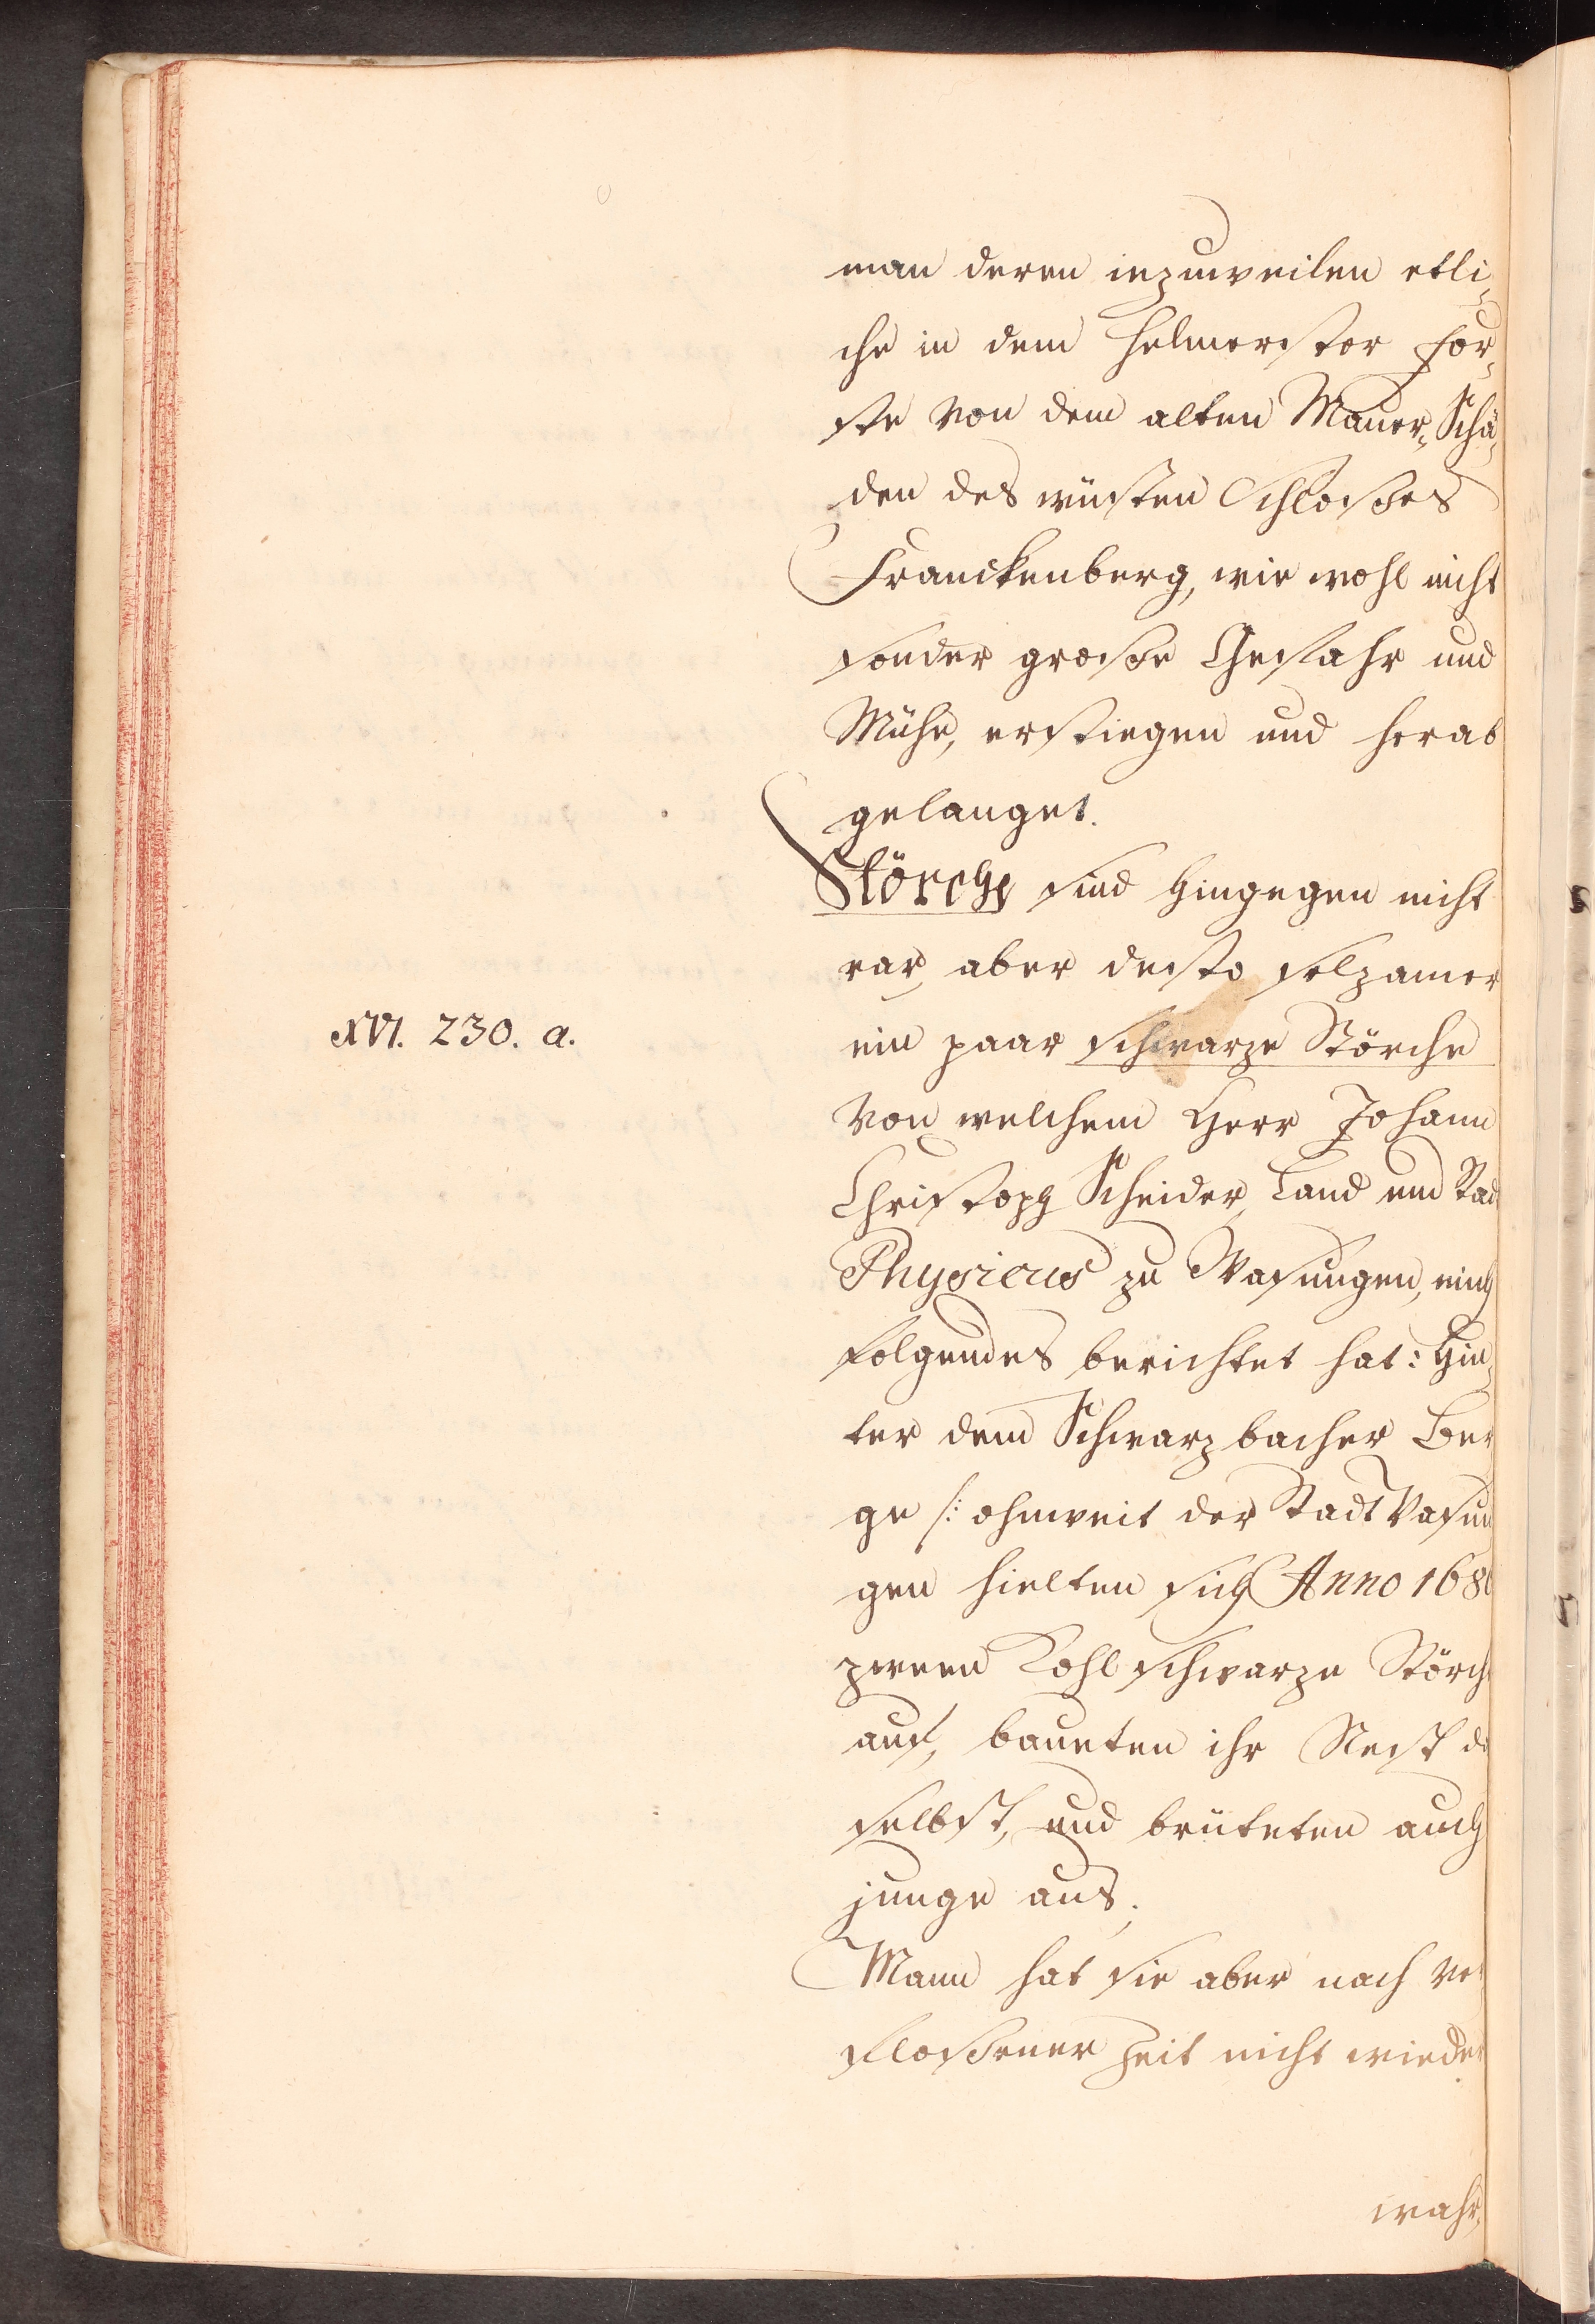 man deren iezuweilen etli-
che in dem Helmerster For-
ste von dem alten Mauer-Schä-
den des wüsten Schloßes
Franckenberg, wie wohl nicht
sonder große Gefahr und
Mühe, erstiegen und herab
gelanget.
Störche sind hingegen nicht
rar, aber desto selzamer
XVI. 230. a.
ein paar schwarze Störche
von welchem Herr Johann
Christoph Scheider, Land und Stad
Physicus zu Wasungen, mich
folgendes berichtet hat: Hin-
ter dem Schwarzbacher Ber
ge /: ohnweit der Stadt Wasun
gen hielten sich Anno 168
zween Kohlschwarze Störch
auf, baueten ihr Nest da
selbst, und brüteten auch
junge aus;
Mann hat sie aber nach ver
floßener Zeit nicht wieder
wahr-